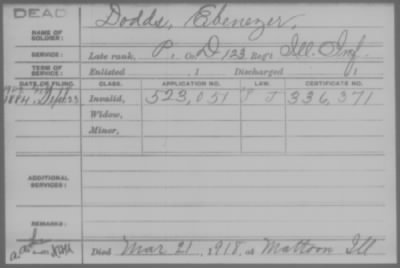 DEAD
NAME OF SOLDIER: Dodds, Ebenezer
SERVICE: Late rank, P, Co. D, 123 Reg't Ill Inf.
TERM OF SERVICE: Enlisted , 1 Discharged , 1
DATE OF FILING. CLASS. APPLICATION NO. LAW. CERTIFICATE NO.
1884, Sept 23 Invalid, 523,051 336,371
Widow,
Minor,
ADDITIONAL SERVICES:
REMARKS:
Died Mar 21, 1918, at Mattoon Ill